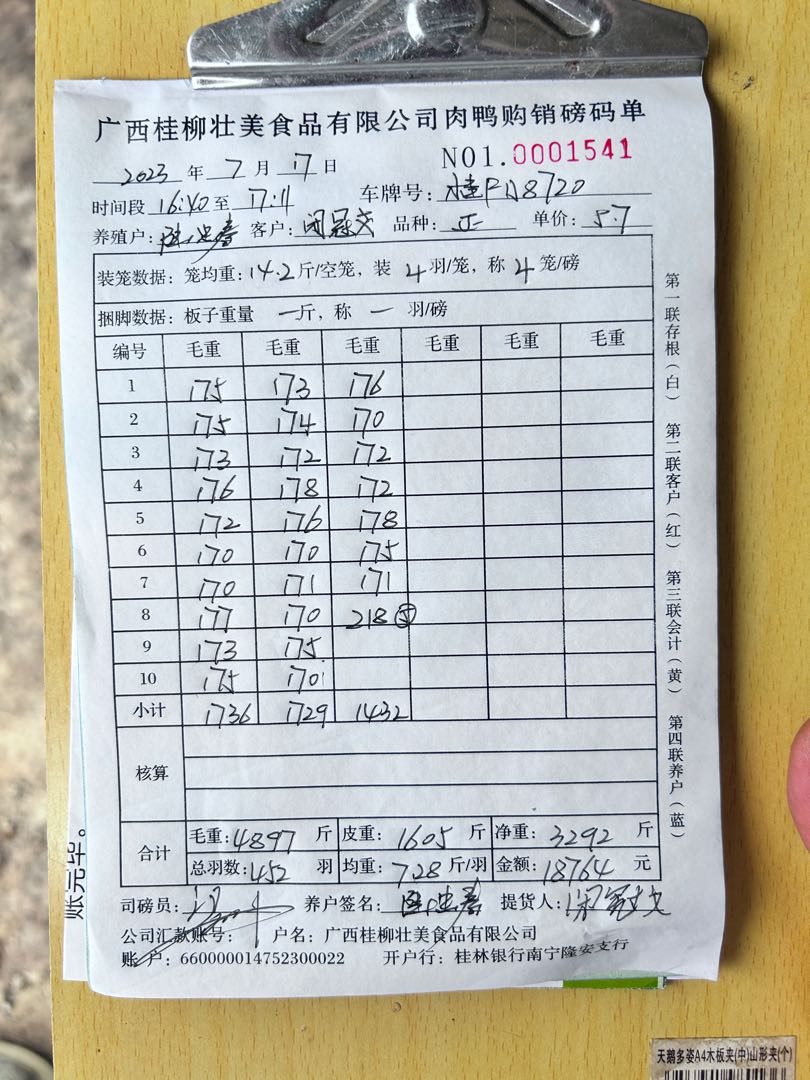 广西桂柳壮美食品有限公司肉鸭购销磅码单
2023 年 7 月 17 日 NO1.0001541
时间段 16:40 至 17:11 车牌号: 桂FD8720
养殖户: 客户: 闭冠文 品种: 单价: 5.7
装笼数据: 笼均重: 14.2 斤/空笼, 装 4 羽/笼, 称 4 笼/磅
捆脚数据: 板子重量 一 斤, 称 一 羽/磅
编号 毛重 毛重 毛重 毛重 毛重 毛重
1 175 173 176
2 175 174 170
3 173 172 172
4 176 178 172
5 172 176 178
6 170 170 175
7 170 171 171
8 177 170 218 ⑤
9 173 175
10 175 170
小计 1736 1729 1432
核算
合计 毛重: 4897 斤 皮重: 1605 斤 净重: 3292 斤
总羽数: 452 羽 均重: 728 斤/羽 金额: 18764 元
司磅员: 养户签名: 提货人:
公司汇款账号: 户名: 广西桂柳壮美食品有限公司
账 户: 660000014752300022 开户行: 桂林银行南宁隆安支行
第一联存根(白) 第二联客户(红) 第三联会计(黄) 第四联养户(蓝)
账完毕。
天鹅多姿A4木板夹(中)山形夹(个)